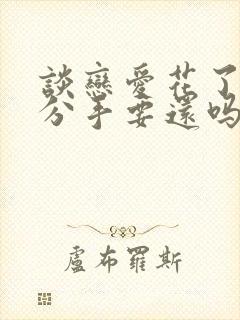 談戀愛花了
分手要還嗎
盧布羅斯